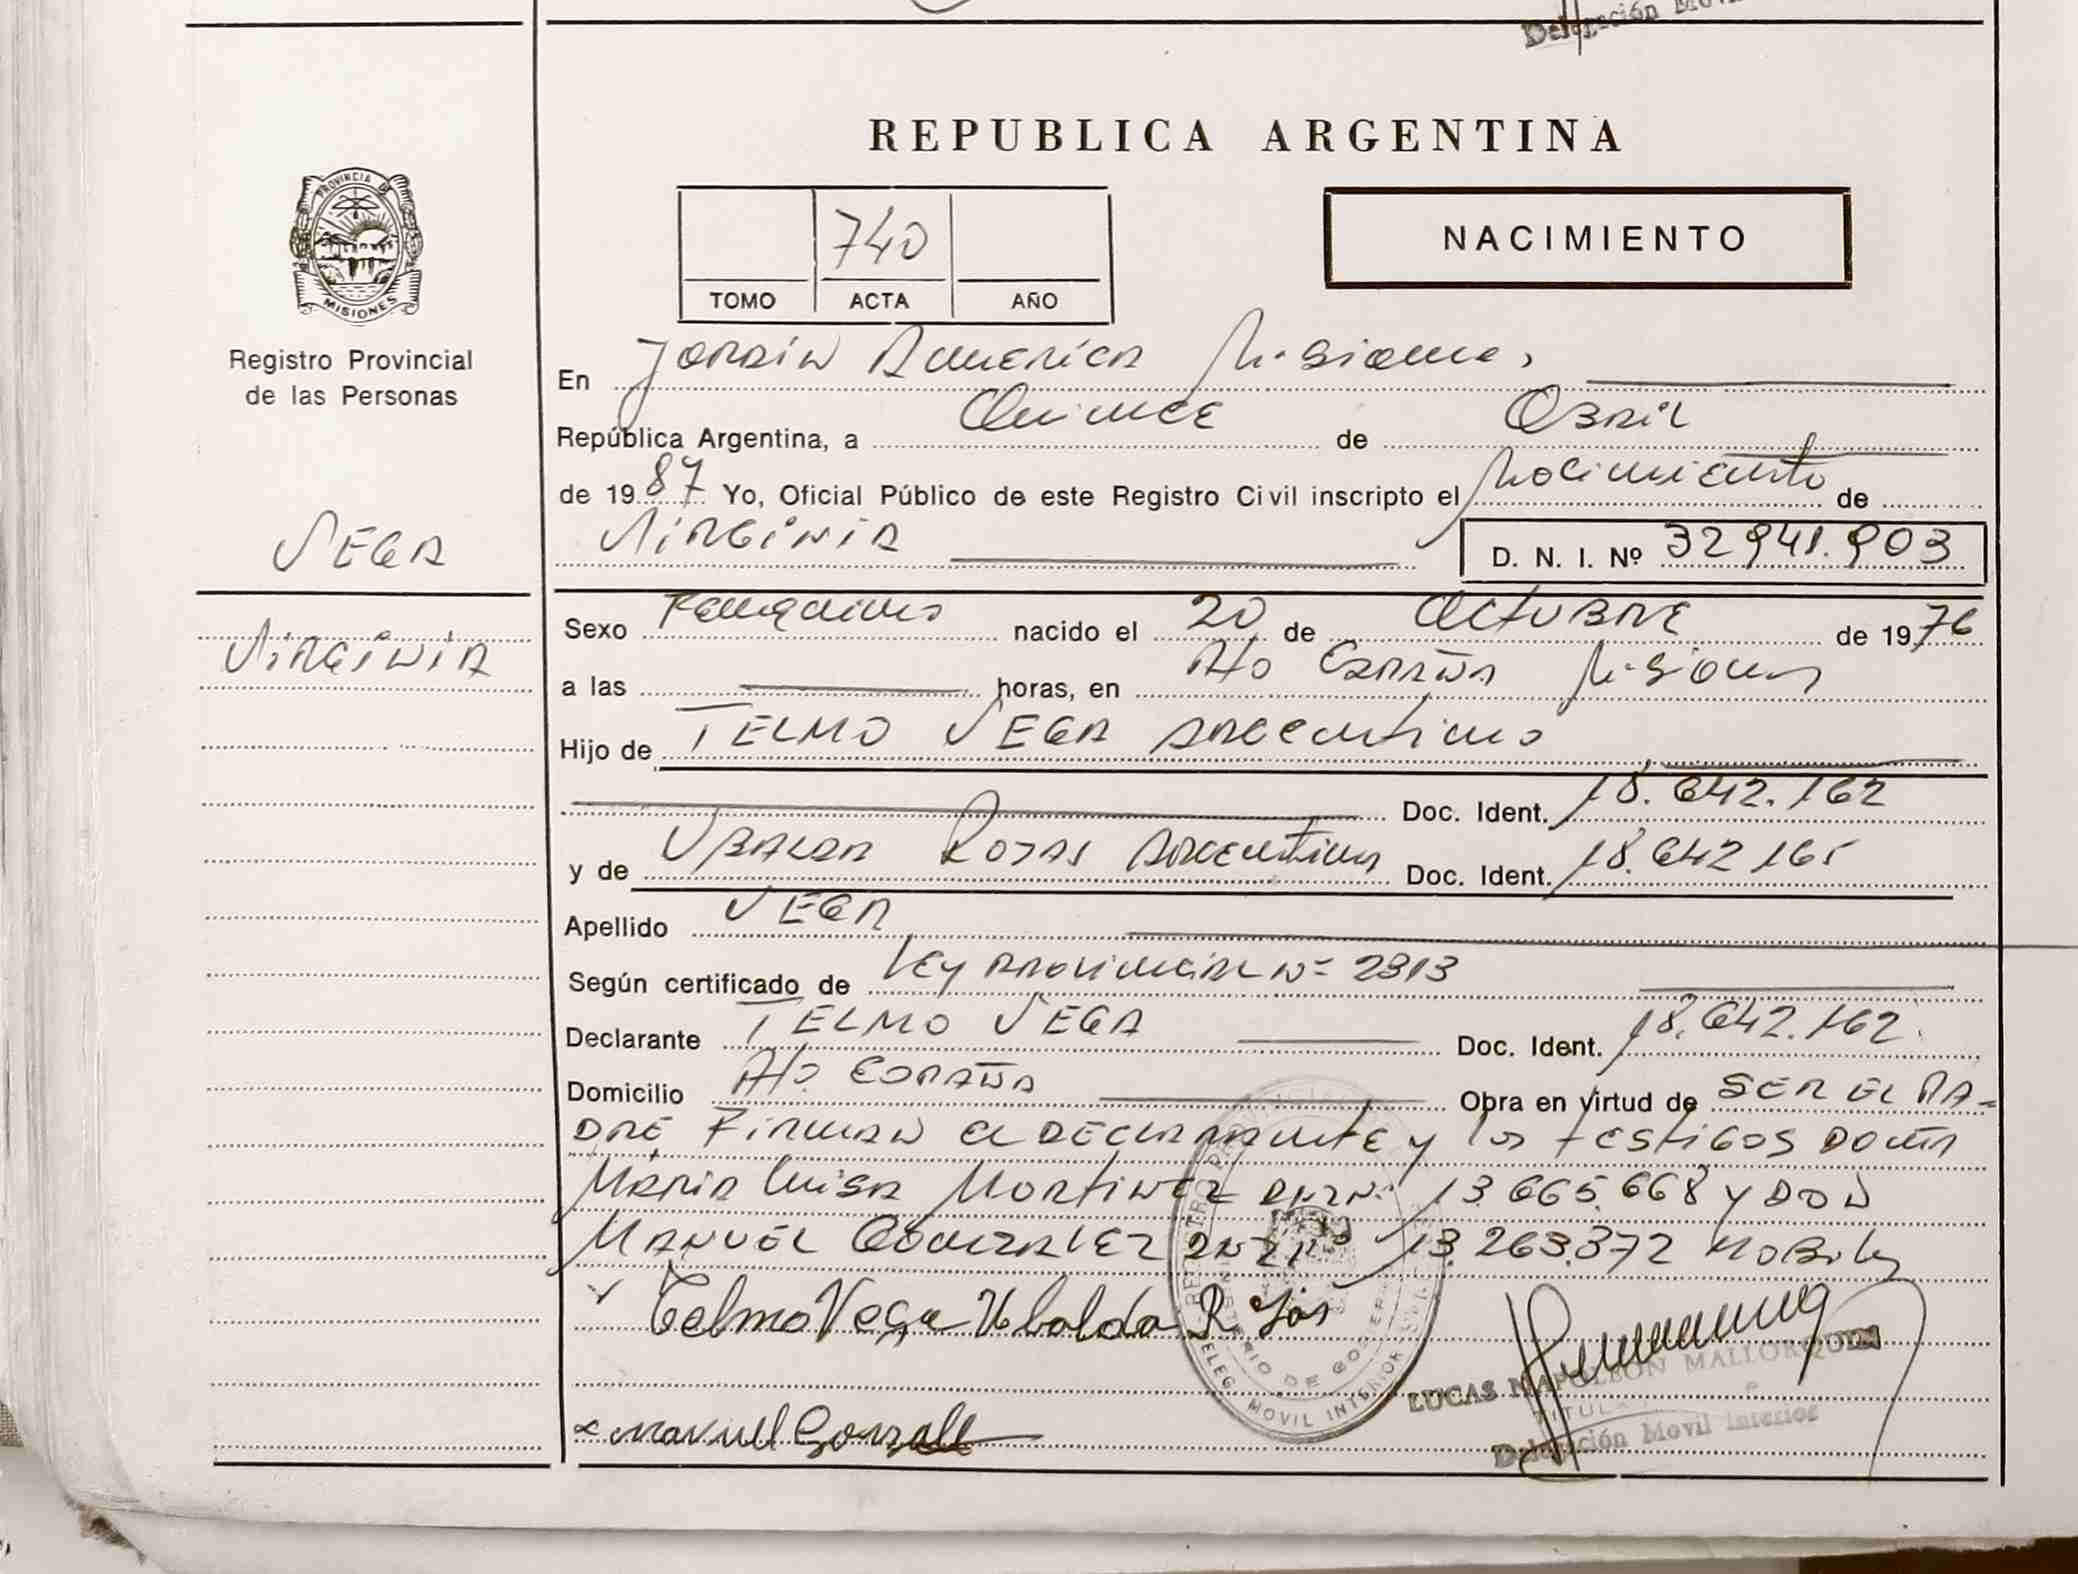 Delegación Movil
REPUBLICA ARGENTINA
PROVINCIA DE
MISIONES
Registro Provincial
de las Personas
740
TOMO ACTA AÑO
NACIMIENTO
En Jardin America Misiones,
República Argentina, a Quince de Abril
de 1987 Yo, Oficial Público de este Registro Civil inscripto el Nacimiento de
VIRGINIA D. N. I. Nº 32941.903
VEGA
VIRGINIA
Sexo Femenino nacido el 20 de OCTUBRE de 1976
a las horas, en Aº ESPAÑA Misiones
Hijo de TELMO VEGA Argentino
Doc. Ident. 18.642.162
y de UBALDA ROJAS Argentina Doc. Ident. 18.642 165
Apellido VEGA
Según certificado de Ley Provincial Nº 2313
Declarante TELMO VEGA Doc. Ident. 18.642.162
Domicilio Aº ESPAÑA Obra en virtud de SER EL PA-
DRE Firman el DECLARANTE y los testigos DOÑA
MARIA LUISA MARTINEZ DNI Nº 13.665.668 y DON
MANUEL GONZALEZ DNI Nº 13.263.372
Telmo Vega Ubalda Rojas
LUCAS NAPOLEON MALLORQUIN
TITULAR
Delegación Movil Interior
Manuel Gonzale